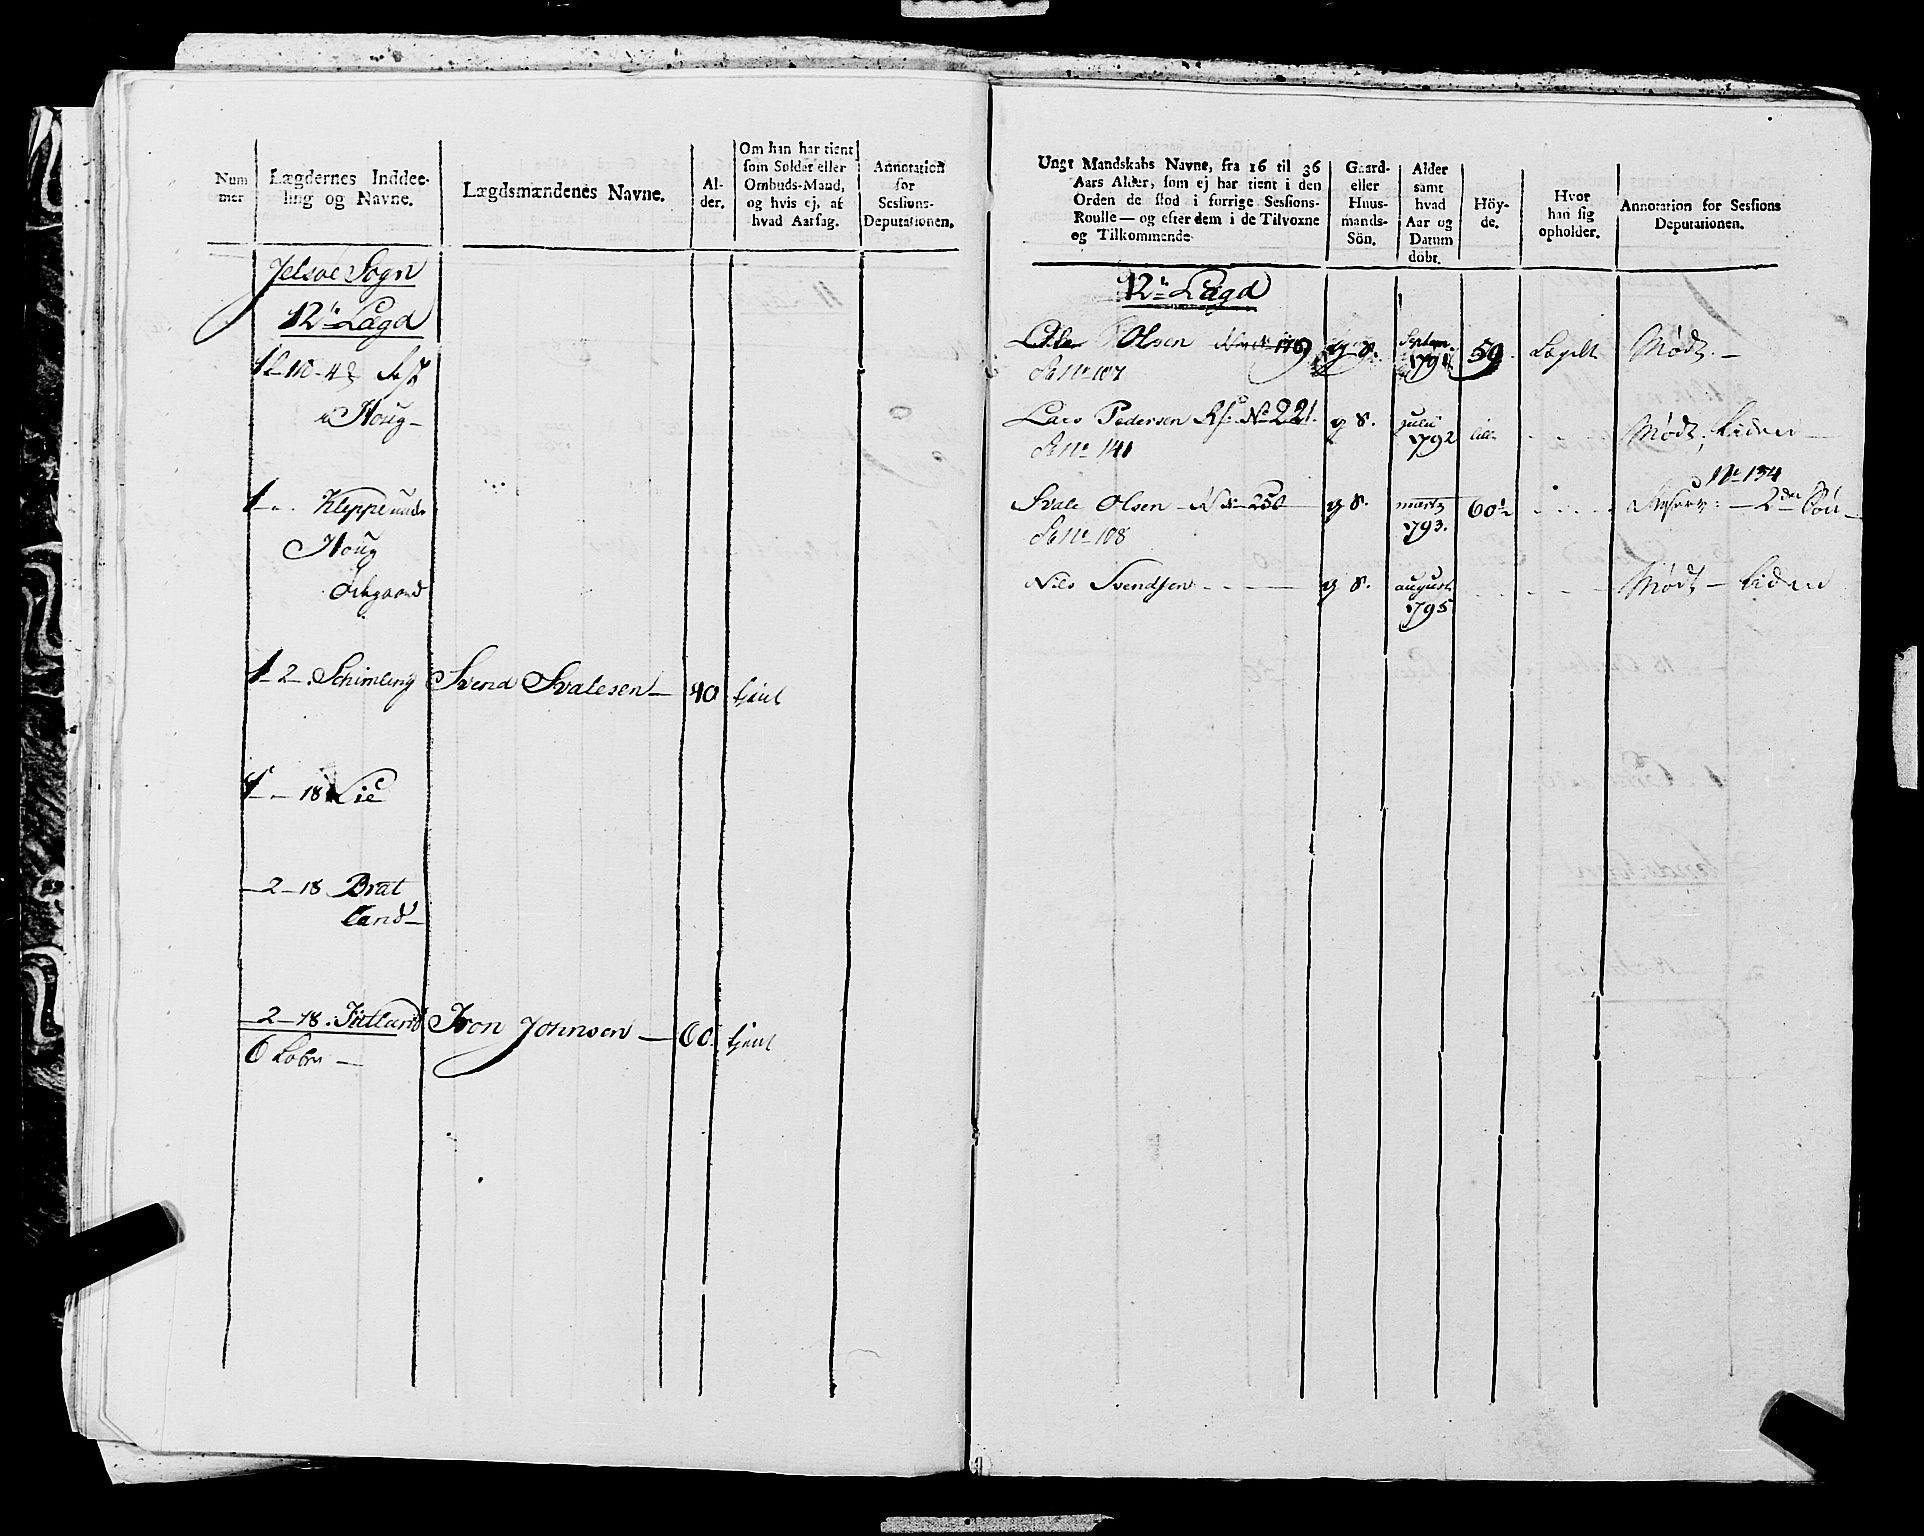 Num
mer
Lægdernes Inddee-
ling og Navne.
Lægdsmændenes Navne.
Al-
der.
Om han har tient
som Soldat eller
Ombuds-Mand,
og hvis ej, af
hvad Aarsag.
Annotation
for
Sessions-
Deputationen.
Jelsøe Sogn
12te Lægd
Houg
1 Kleppe
Houg
1 2 Schimling Svend Svalesen 40 tjent
1 18 Lie
2 18 Brat
land
2 18 Jutland Ivon Johnsen 60 tjent
6
Ungt Mandskabs Navne, fra 16 til 36
Aars Alder, som ej har tient i den
Orden de stod i forrige Sessions-
Roulle — og efter dem i de Tilvoxne
og Tilkommende
Gaard-
eller
Huus-
mands-
Sön.
Alder
samt
hvad
Aar og
Datum
döbt.
Höy-
de.
Hvor
han sig
opholder.
Annotation for Sessions
Deputationen.
12te Lægd
Ole Olsen g S. Septem 1791 59 Lægdt Mødt
No 107
Lars Pedersen No 221 g S. julii 1792 Mødt, liden
No 141
Svale Olsen 250 g S. marty 1793. 60½ No 134 2den Søn
No 108
Nils Svendsen g S. august 1795 Mødt liden